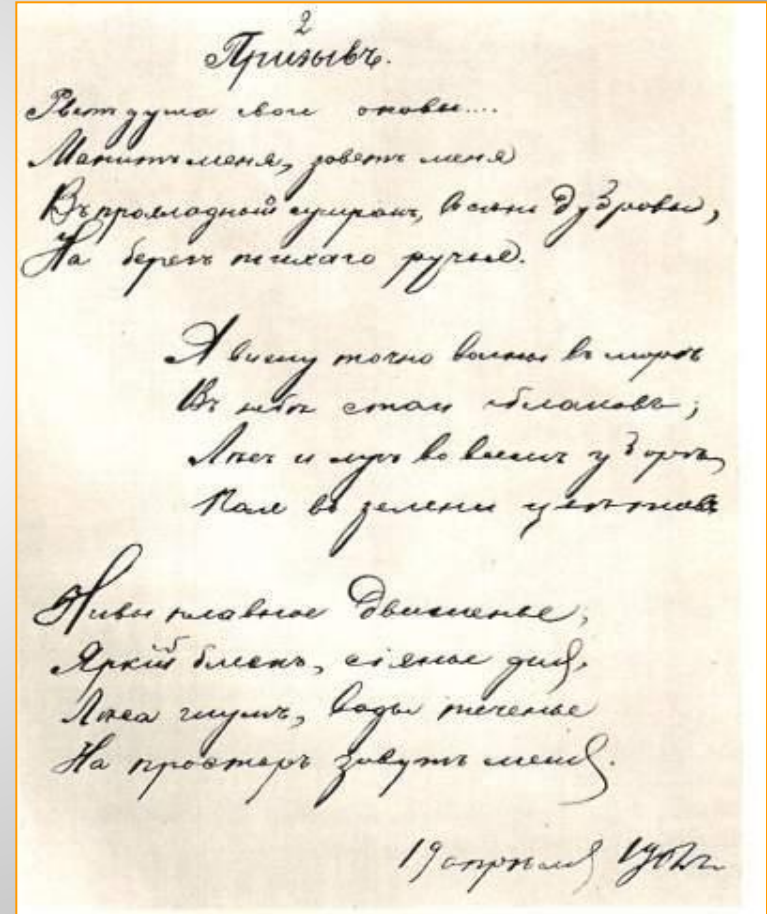 2
Призывъ.
Рвет душа свои оковы....
Манитъ меня, зоветъ меня
Въ прохладный сумракъ, въ сѣни дубровы,
На берегъ тихаго ручья.
Я вижу точно волны въ морѣ
Въ небѣ стаи облаковъ;
Лѣсъ и лугъ во всемъ уборѣ,
Поле въ зелени цвѣтковъ
Нивы плавное движенье,
Яркій блескъ, сіянье дня,
Лѣса шумъ, воды теченье
На просторъ зовутъ меня.
19 апрѣля